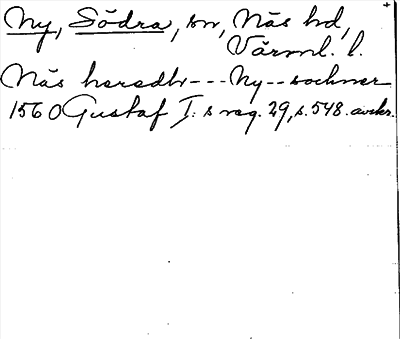 Ny, Södra, sn, Näs hd,
Värml. l.
Näs haradh --- Ny -- sochner
1560 Gustaf I:s reg. 29, s. 548. avskr.